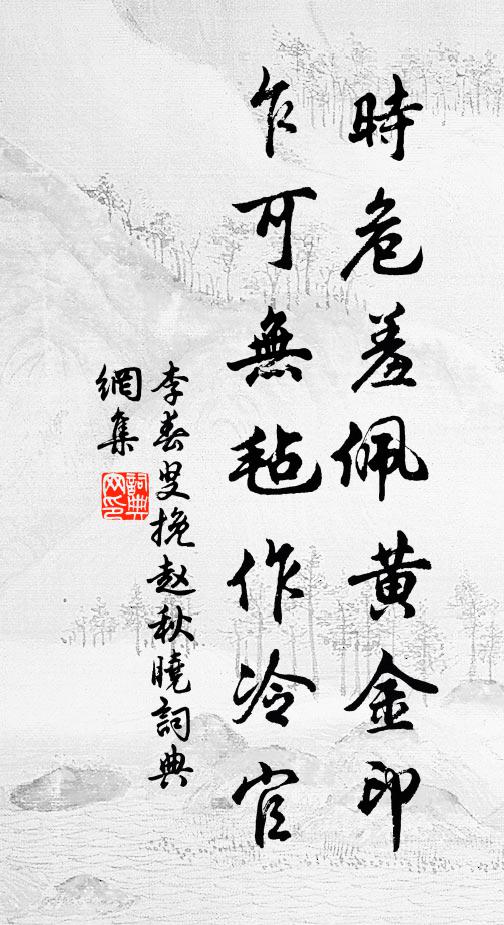 時危羞佩黄金印
乍可無毡作冷官
李春叟挽赵秋曉詞典
網集
詞典
网印